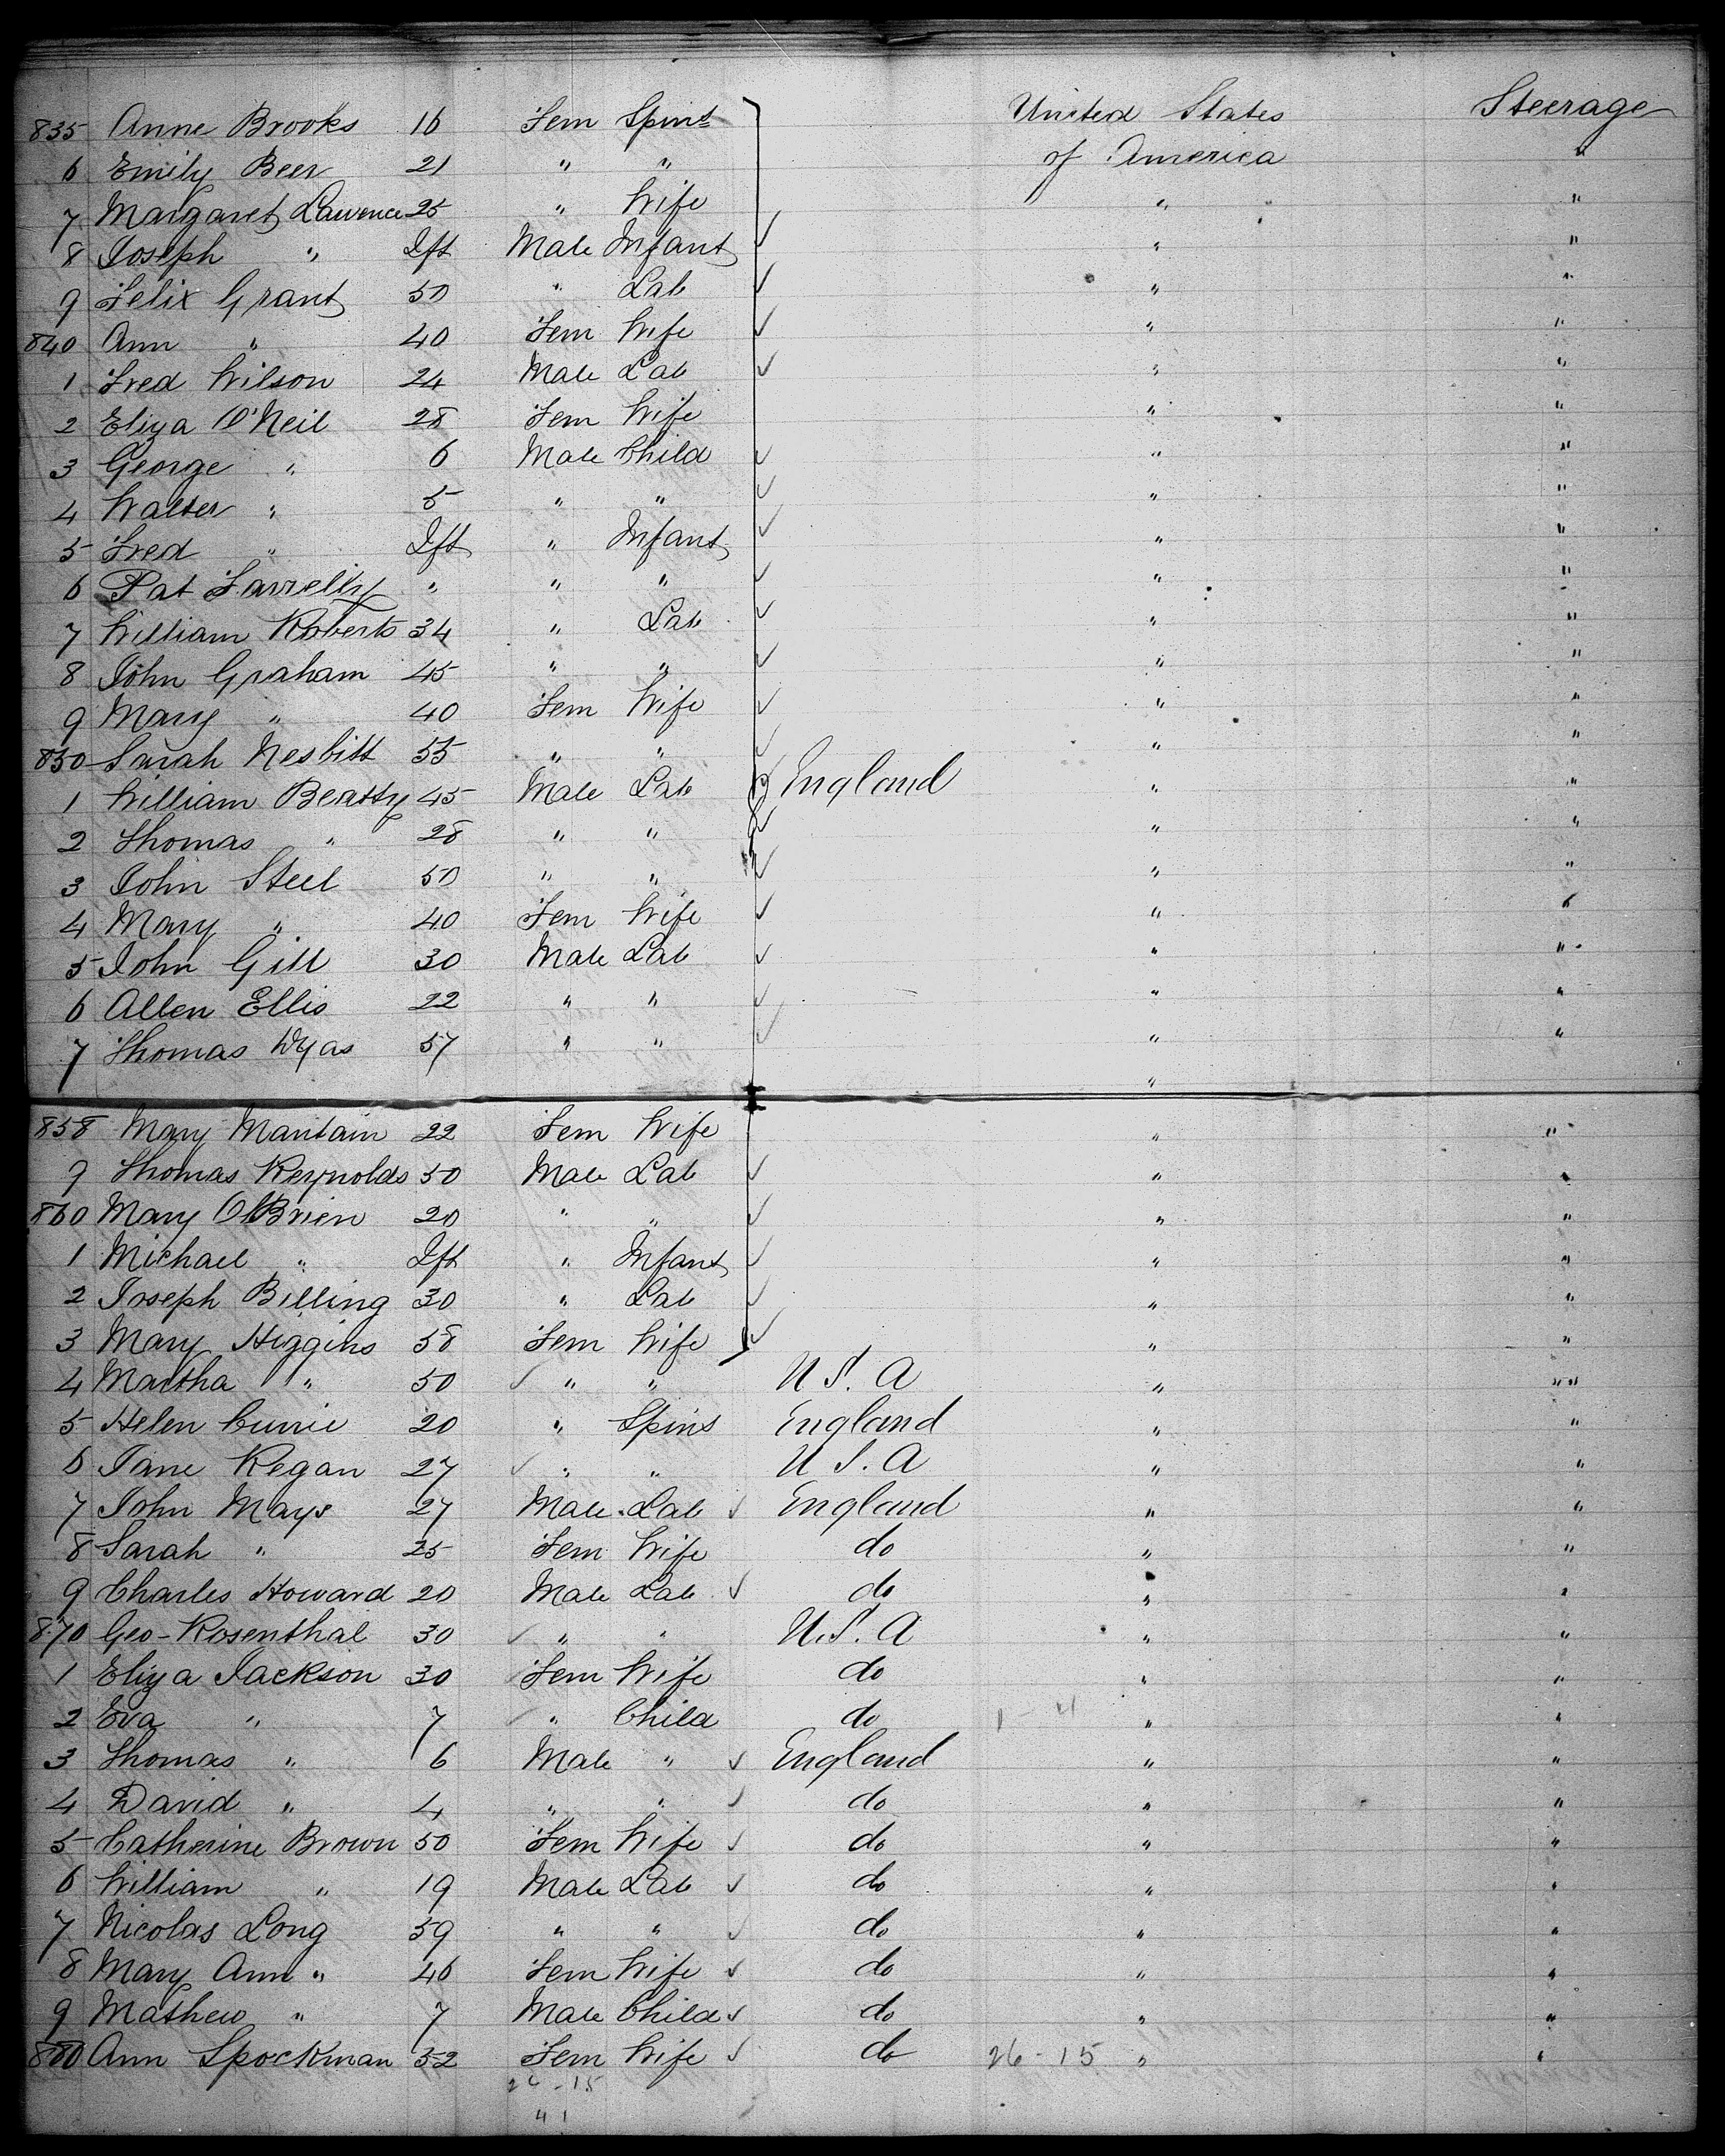 835 Anne Brooks 16 Fem Spinst United States Steerage
6 Emily Beer 21 " " of America "
7 Margaret Lawrence 25 " Wife " "
8 Joseph " Ift Male Infant " "
9 Felix Grant 50 " Lab " "
840 Ann " 40 Fem Wife " "
1 Fred Wilson 24 Male Lab " "
2 Eliza O'Neil 28 Fem Wife " "
3 George " 6 Male Child " "
4 Walter " 5 " " " "
5 Fred " Ift " Infant " "
6 Pat Farrelly " " " " "
7 William Roberts 34 " Lab " "
8 John Graham 45 " " " "
9 Mary " 40 Fem Wife " "
850 Sarah Nesbitt 55 " " " "
1 William Beatty 45 Male Lab England " "
2 Thomas " 28 " " " "
3 John Steel 50 " " " "
4 Mary " 40 Fem Wife " "
5 John Gill 30 Male Lab " "
6 Allen Ellis 22 " " " "
7 Thomas Dyas 57 " " " "
"
858 Mary Mantain 22 Fem Wife " "
9 Thomas Reynolds 50 Male Lab " "
860 Mary O'Brien 20 " " " "
1 Michael " Ift " Infant " "
2 Joseph Billing 30 " Lab " "
3 Mary Higgins 58 Fem Wife " "
4 Martha " 50 " " U.S.A " "
5 Helen Currie 20 " Spins England " "
6 Jane Regan 27 " " U.S.A " "
7 John Mays 27 Male Lab England " "
8 Sarah " 25 Fem Wife do " "
9 Charles Howard 20 Male Lab do " "
870 Geo-Rosenthal 30 " " U.S.A " "
1 Eliza Jackson 30 Fem Wife do " "
2 Eva " 7 " Child do 1 - 4 " "
3 Thomas " 6 Male " England " "
4 David " 4 " " do " "
5 Catherine Brown 50 Fem Wife do " "
6 William " 19 Male Lab do " "
7 Nicolas Long 59 " " do " "
8 Mary Ann " 46 Fem Wife do " "
9 Mathew " 7 Male Child do " "
880 Ann Spockman 32 Fem Wife do 26 - 15 " "
26 - 15
41